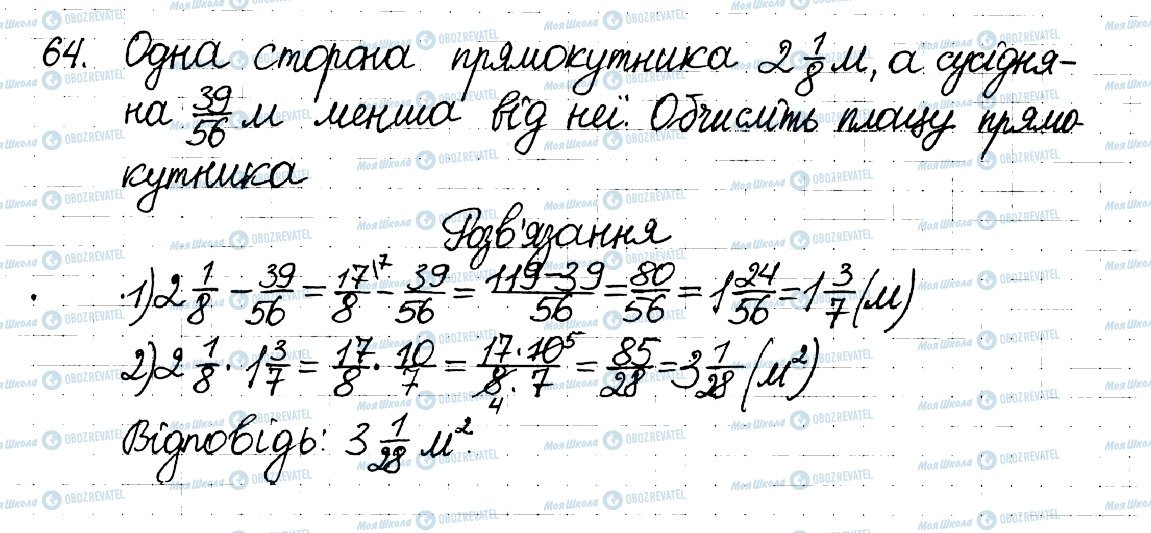 64. Одна сторона прямокутника 2 1/8 м, а сусідня-
на 39/56 м менша від неї. Обчисліть площу прямо-
кутника
Розв'язання
1) 2 1/8 - 39/56 = 17/8 \7 - 39/56 = 119-39/56 = 80/56 = 1 24/56 = 1 3/7 (м)
2) 2 1/8 · 1 3/7 = 17/8 · 10/7 = 17·10 5/8·7 4 = 85/28 = 3 1/28 (м²)
Відповідь: 3 1/28 м².